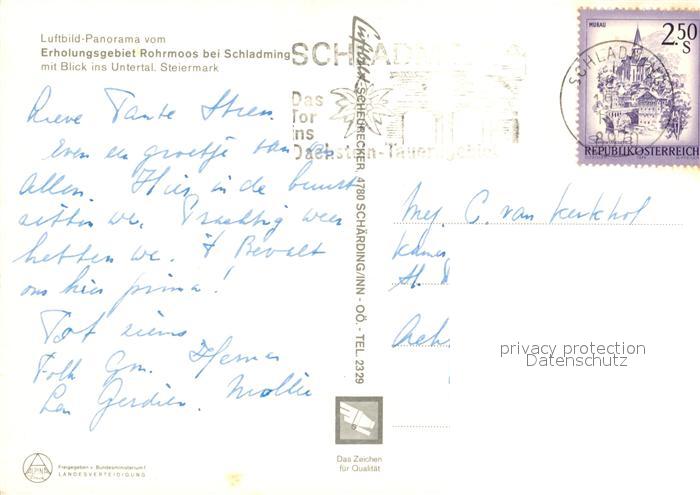 Luftbild-Panorama vom
Erholungsgebiet Rohrmoos bei Schladming
mit Blick ins Untertal. Steiermark
Lieve Tante Stien.
Even en groetje van
Allen. Hier in de buurt
zitten we. Prachtig weer
hebben we. 't Bevalt
ons hier prima!
Tot ziens
Gerdien. Mollie
SCHLADMING
Das
Tor
ins
Dachstein-Tauerngebiet
Luftbild-SCHEURECKER, 4780 SCHÄRDING/INN - OÖ. - TEL. 2329
MURAU
2.50
S
SCHLADMING
REPUBLIK ÖSTERREICH
Mej. C. van Kerkhof
privacy protection
Datenschutz
Das Zeichen
für Qualität
ALPINA
Druck
Freigegeben v. Bundesministerium f.
LANDESVERTEIDIGUNG